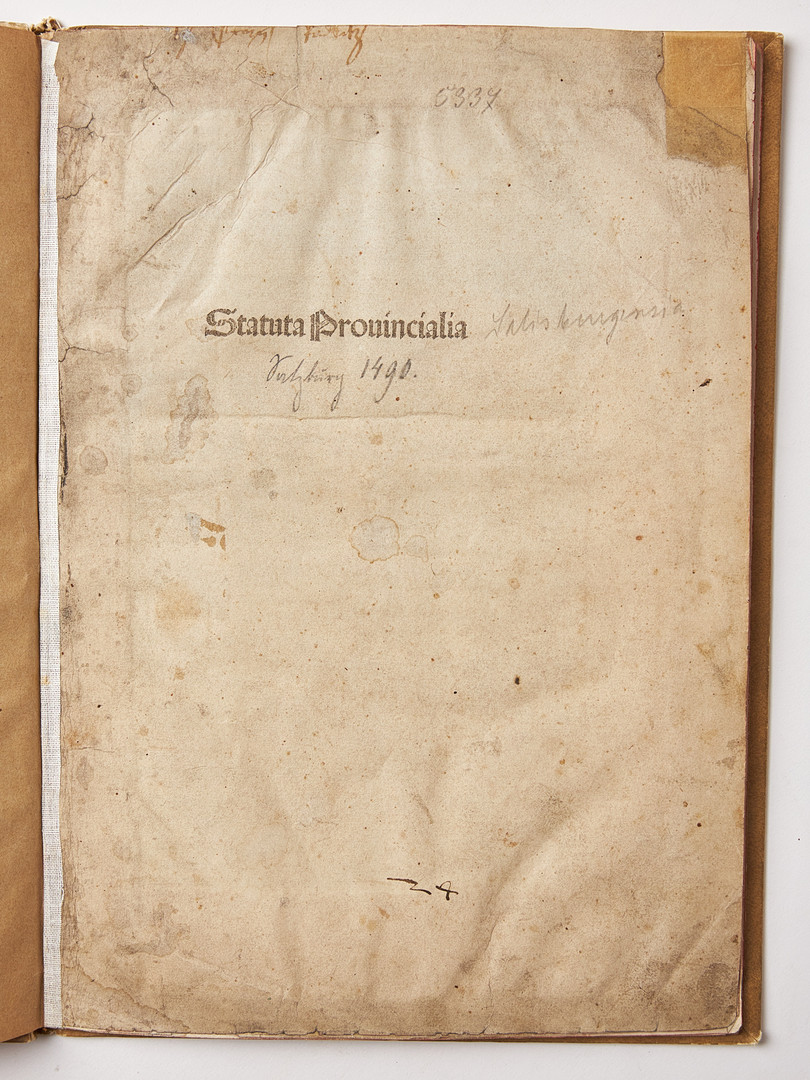 5337
Statuta Prouincialia Salisburgensia
Salzburg 1490.
24